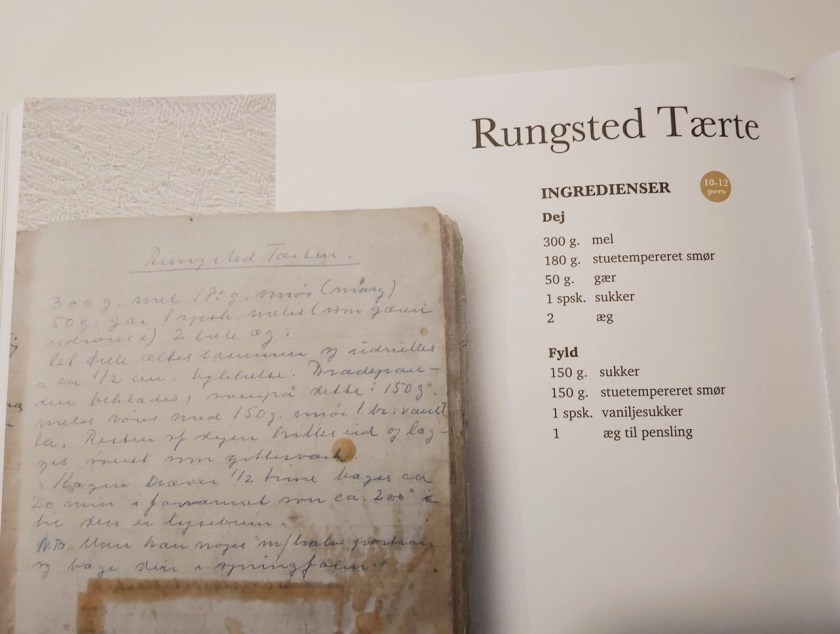 Rungsted Tærte
INGREDIENSER
10-12
pers
Dej
300 g. mel
180 g. stuetempereret smør
50 g. gær
1 spsk. sukker
2 æg
Fyld
150 g. sukker
150 g. stuetempereret smør
1 spsk. vaniljesukker
1 æg til pensling
Rungsted Tærten.
300g. mel 180g. smør (marg)
50g. gær 1 spsk. melis (som gæren
udrøres i) 2 hele æg.
Det hele æltes sammen og udrulles
i ca 1/2 cm. tykkelse. Bradepan-
den beklædes, ovenpå dette: 150g.
melis røres med 150g. smør 1 br. vanil
le. Resten af dejen trilles ud og læg-
ges øverst som gitterværk.
Kagen hæver 1/2 time bages ca
20 min i forvarmet ovn ca. 200°
til den er lysebrun.
NB. Man kan nøjes m/halv portion
og bage den i springform.